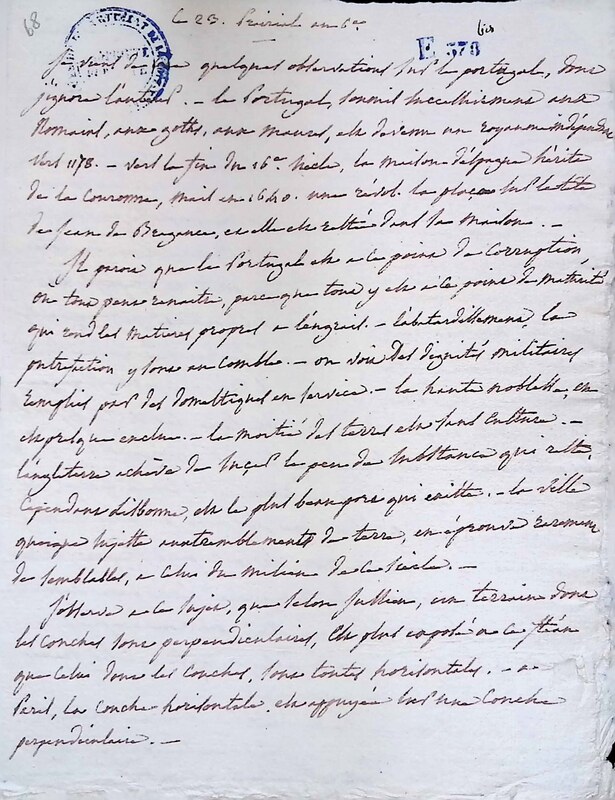 68
Le 23. Prairial an 6e
bis
E 570
Je viens de lire quelques observations sur le portugal, dont
j'ignore l'auteur. – le Portugal, soumis successivement aux
Romains, aux goths, aux maures, est devenu un royaume indépendant
vers 1178. – vers la fin du 16e siècle, la maison d'espagne hérita
de la Couronne, mais en 1640. une révol. la plaça sur la tête
de Jean de Bragance, et elle est restée dans sa maison. –
Il paroit que le Portugal est a ce point de Corruption,
où tout peut renaitre, parce que tout y est a ce point de maturité
qui rend les matieres propres a l'engrais. – l'abatardissement, la
putrefaction y sont au comble. – on voit des dignités militaires
remplies par des domestiques en service. – la haute noblesse, en
est presque exclue. – la moitié des terres est sans culture. –
l'angleterre achève de sucer le peu de substance qui reste,
Cependant lisbonne, est le plus beau port qui existe. – la ville
quoique sujette aux tremblements de terre, en éprouve rarement
de semblables, a celui du milieu de ce siecle. –
J'observe a ce sujet, que selon Jullien, un terrain dont
les couches sont perpendiculaires, est plus exposé a ce fléau
que celui dont les couches, sont toutes horisontales. – a
Paris, la couche horisontale est appuyée sur une couche
perpendiculaire. –